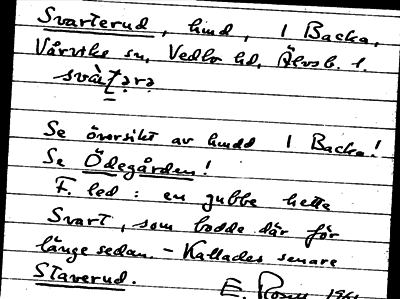 Svarterud, hmd, 1 Backa,
Vårviks sn, Vedbo hd, Älvsb. l.
svàṭərə
Se översikt av hmdd 1 Backa!
Se Ödegården!
F. led: en gubbe hette
Svart, som bodde där för
länge sedan. - Kallades senare
Staverud.
E.